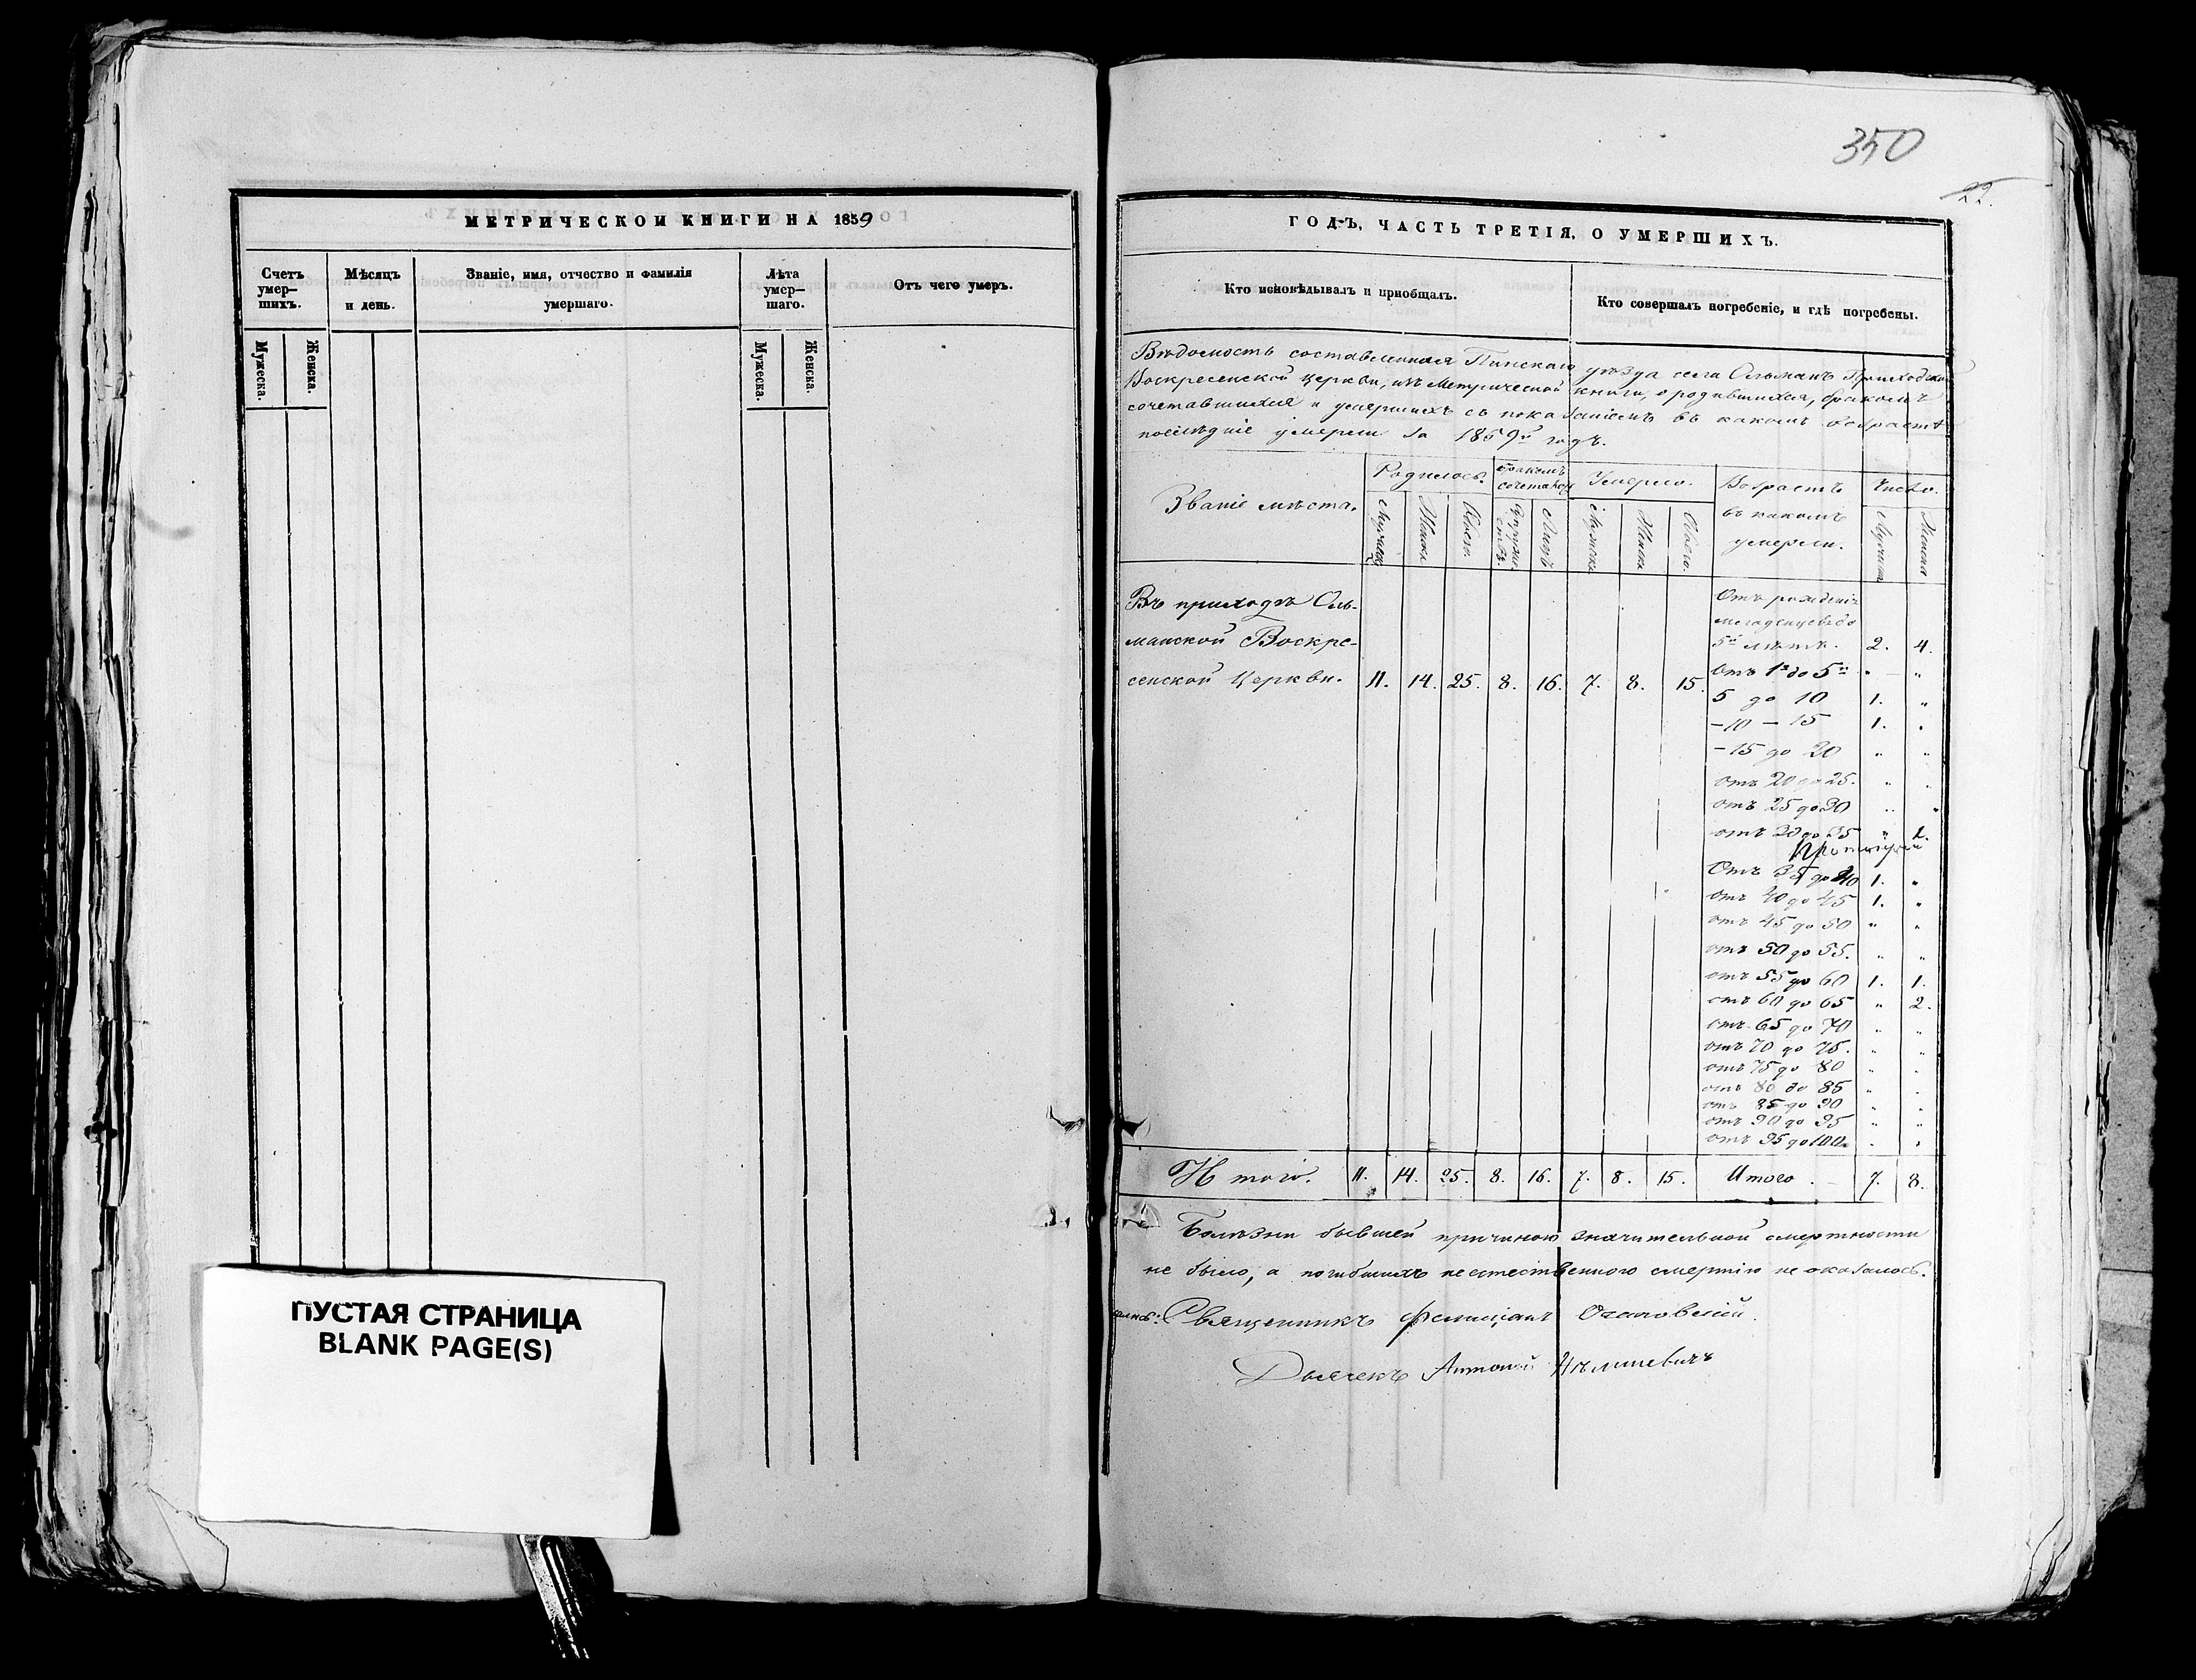 350
22.
МЕТРИЧЕСКОЙ КНИГИ НА 1859
Счетъ умер-
шихъ.
Мѣсяцъ
и день.
Званіе, имя, отчество и фамилія
умершаго.
Лѣта
умер-
шаго.
Отъ чего умеръ.
Мужеска.
Женска.
Мужеска.
Женска.
ПУСТАЯ СТРАНИЦА
BLANK PAGE(S)
ГОДЪ, ЧАСТЬ ТРЕТІЯ, О УМЕРШИХЪ.
Кто исповѣдывалъ и пріобщалъ.
Кто совершалъ погребеніе, и гдѣ погребены.
Вѣдомость составленная Пинскаго уѣзда села Ольманъ Приходской
Воскресенской церкви, изъ Метрической книги, о родившихся, бракомъ
сочетавшихся и умершихъ съ показаніемъ въ какомъ возрастѣ
послѣдніе умерли за 1859й годъ.
Званіе мѣста.
Родилось.
Бракомъ
сочеталось
Умерло.
Возрастъ
въ какомъ
умерли.
Число.
Мужеска
Женска
Обоего.
Супружествъ.
Лицъ
Мужеска
Женска
Обоего.
Мужеска
Женска
Въ приходѣ Оль-
манской Воскре-
сенской Церкви. 11. 14. 25. 8. 16. 7. 8. 15.
Отъ рожденія
младенцевъ до
5й лѣтъ. 2. 4.
Отъ 1 до 5й " "
5 до 10 1. "
-10 - 15 1. "
-15 до 20 " "
отъ 20 до 25. " "
отъ 25 до 30 " "
отъ 30 до 35 " 1.
Отъ 35 до 40 1. "
отъ 40 до 45 1. "
отъ 45 до 50 " "
отъ 50 до 55. " "
отъ 55 до 60 1. 1.
отъ 60 до 65 " 2.
отъ 65 до 70 " "
отъ 70 до 75. " "
отъ 75 до 80 " "
отъ 80 до 85 " "
отъ 85 до 90 " "
отъ 90 до 95 " "
отъ 95 до 100. " "
Итого. 11. 14. 25. 8. 16. 7. 8. 15. Итого. 7. 8.
Болѣзни бывшей причиною значительной смертности
не было, а погибшихъ неестественною смертію не оказалось.
Священникъ Фелиціанъ
Дьячекъ Антоній